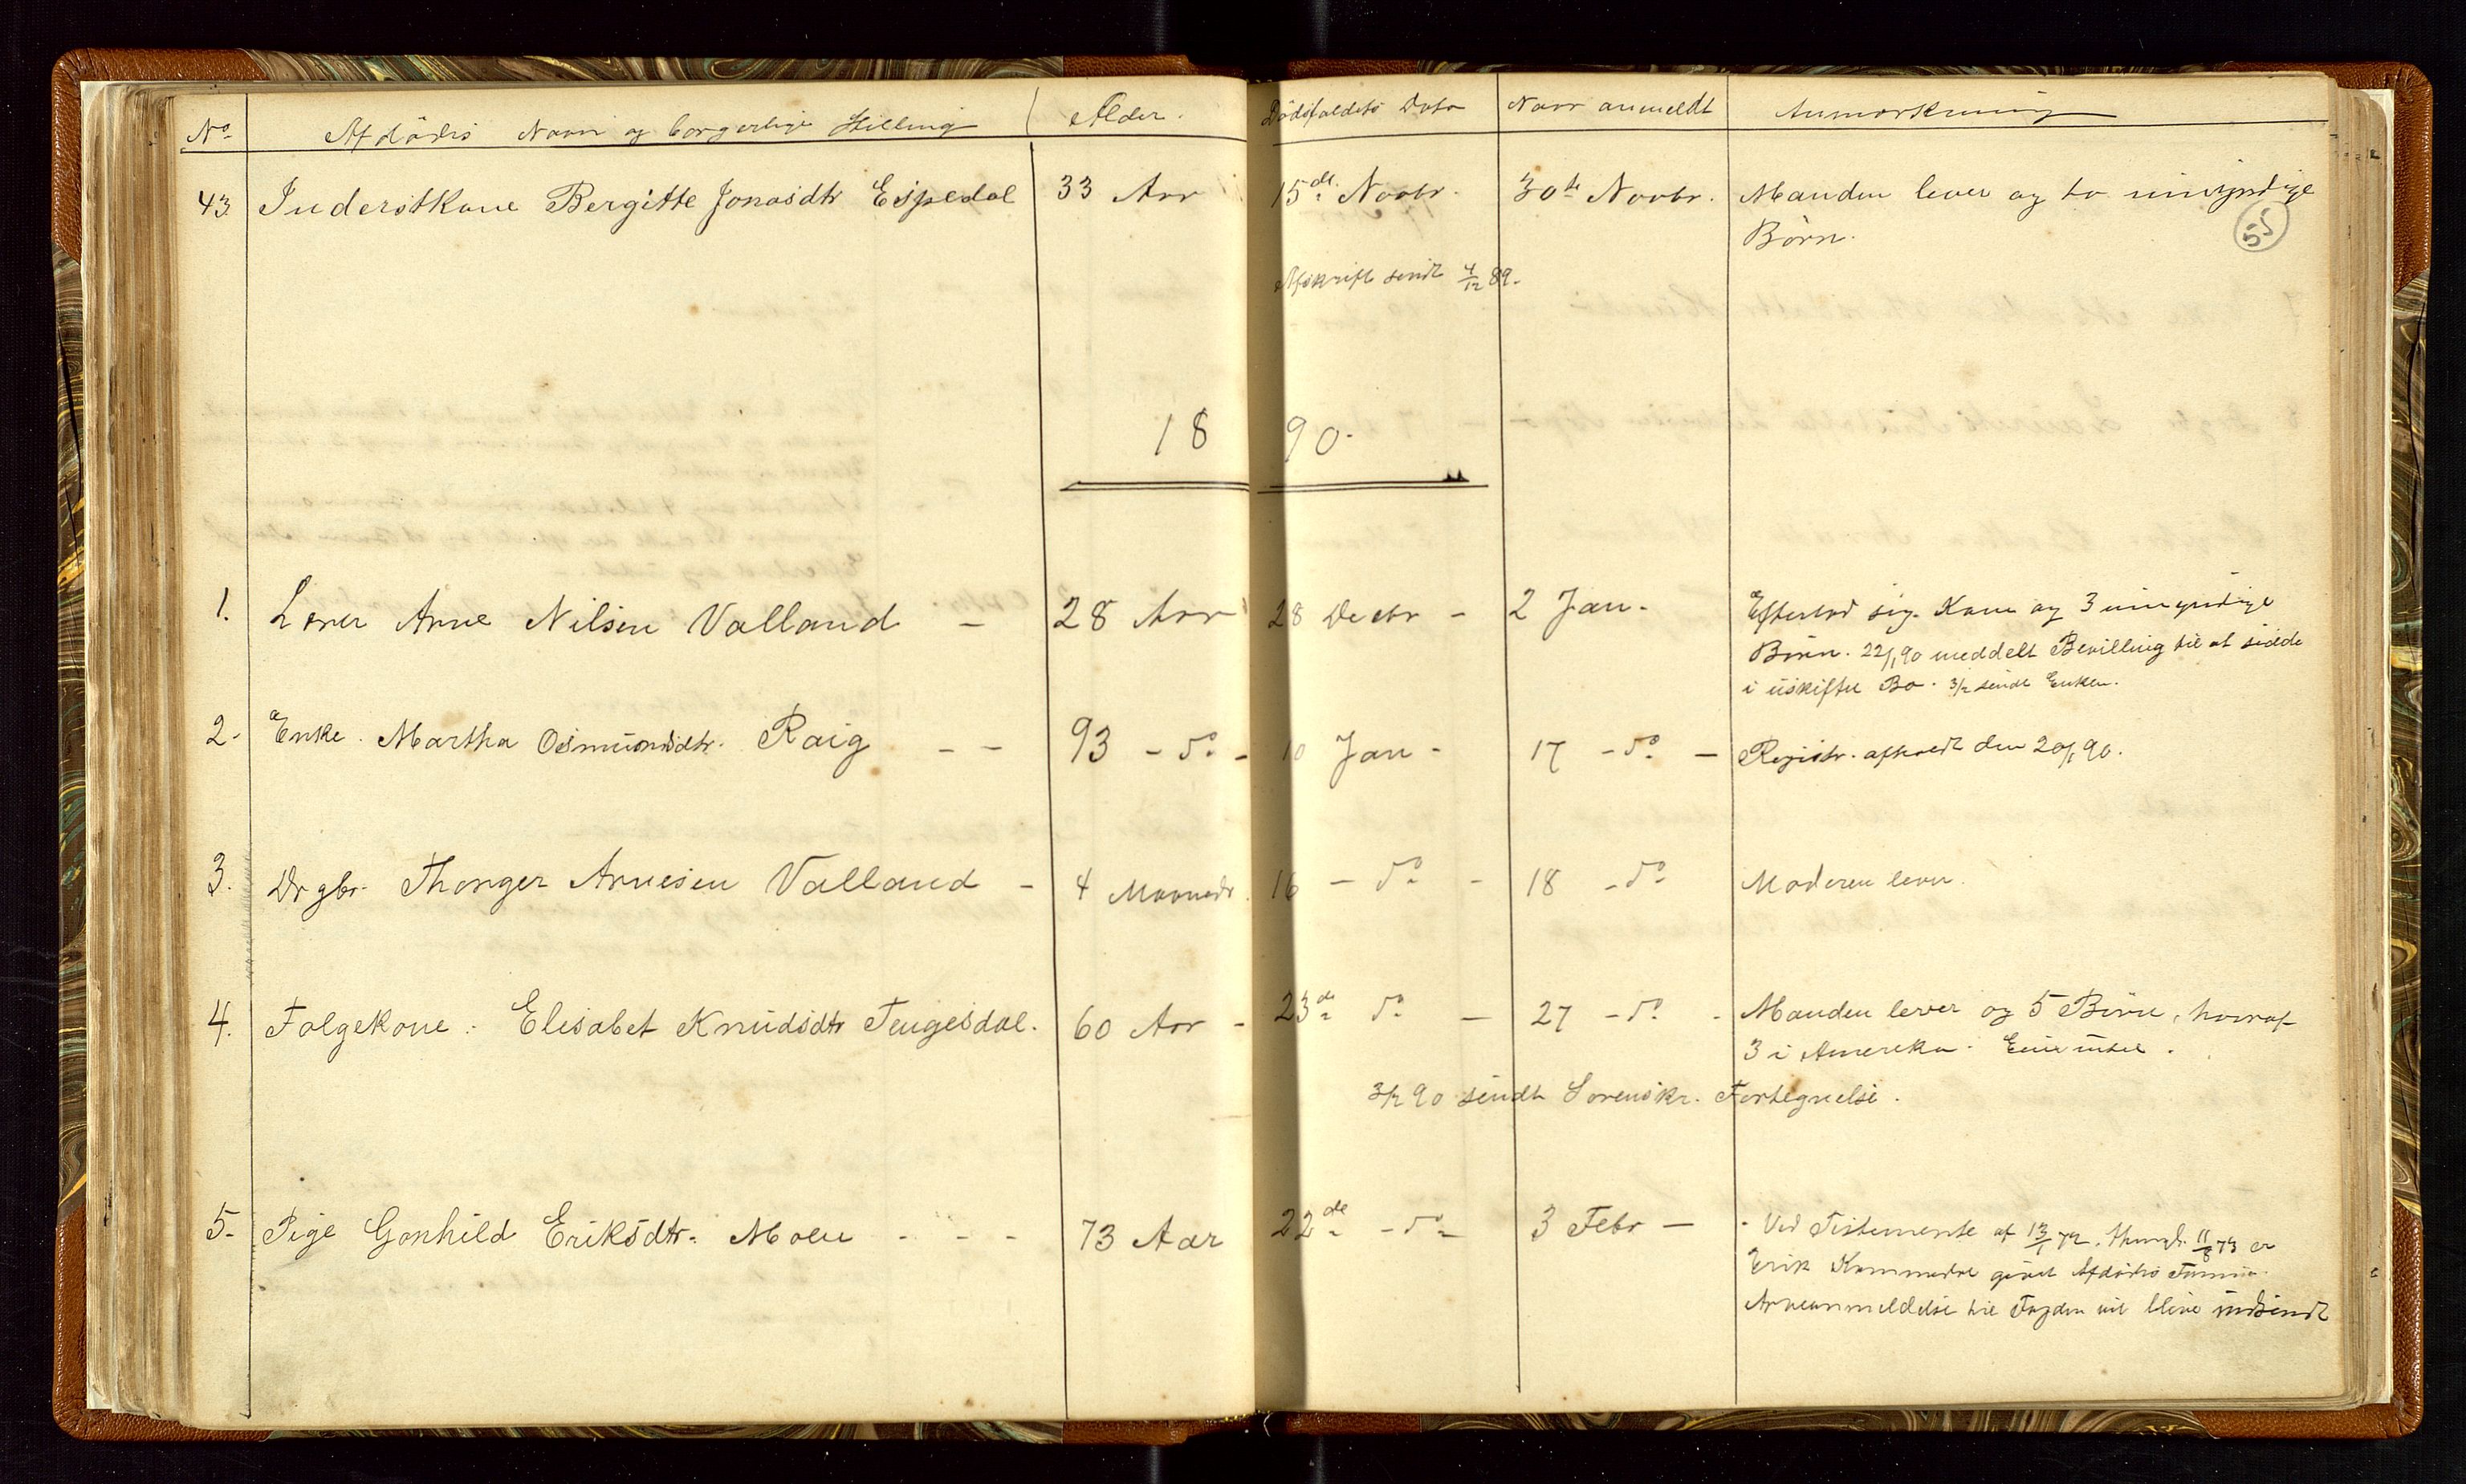 No. Afdødes Navn og borgerlige Stilling Alder. Dödsfaldets Dato Naar anmeldt Anmærkning
43. Inderstkone Bergitte Jonasdtr Espedal 33 Aar 15de Novbr. 30te Novbr. Manden lever og to umyndige
Börn.
55
Afskrift sendt 4/12 89.
1890.
1. Lærer Arne Nilsen Valland – 28 Aar 28 Decbr – 2 Jan. Efterlod sig Kone og 3 umyndige
Börn. 22/1 90 meddelt Bevilling til at sidde
i uskiftet Bo. 3/2 sendt Enken.
2. Enke Martha Osmundsdtr. Raig – – 93 – do – 10 Jan – 17 – do – Registr. afholdt den 20/1 90.
3. Drgbr. Thorger Arnesen Valland – 4 Maaneder 16 – do – 18 – do Moderen lever.
4. Folgekone Elisabet Knudsdtr Tengesdal. 60 Aar – 23de do – 27 – do – Manden lever og 5 Börn, hvoraf
3 i Amerika.
3/2 90 sendt Sorenskr. Fortegnelse.
5. Pige Gonhild Eriksdtr. Moen – – – 73 Aar 22de – do 3 Febr – Ved Testemente af 13/1 72, thingl. 11/8 73 er
Erik
Arveanmeldelse til Fogden vil blive indsendt